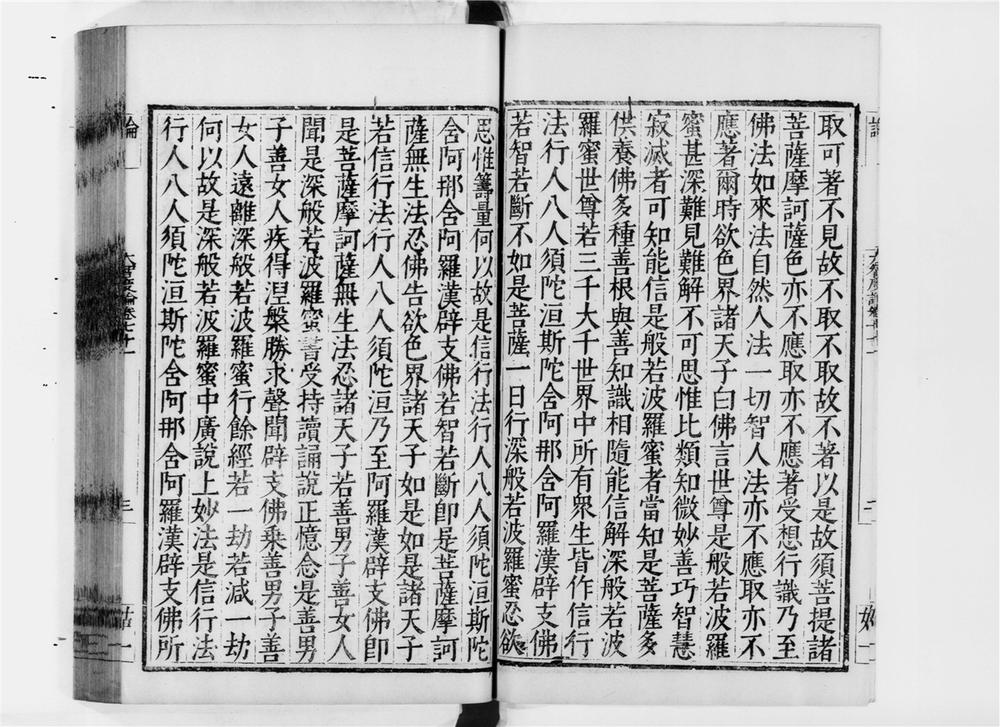 取可著不見故不取不取故不著以是故須菩提諸
菩薩摩訶薩色亦不應取亦不應著受想行識乃至
佛法如來法自然人法一切智人法亦不應取亦不
應著爾時欲色界諸天子白佛言世尊是般若波羅
蜜甚深難見難解不可思惟比類知微妙善巧智慧
寂滅者可知能信是般若波羅蜜者當知是菩薩多
供養佛多種善根與善知識相隨能信解深般若波
羅蜜世尊若三千大千世界中所有衆生皆作信行
法行人八人須陀洹斯陀含阿那含阿羅漢辟支佛
若智若斷不如是菩薩一日行深般若波羅蜜忍欲
思惟籌量何以故是信行法行人八人須陀洹斯陀
含阿那含阿羅漢辟支佛若智若斷卽是菩薩摩訶
薩無生法忍佛告欲色界諸天子如是如是諸天子
若信行法行人八人須陀洹乃至阿羅漢辟支佛卽
是菩薩摩訶薩無生法忍諸天子若善男子善女人
聞是深般若波羅蜜書受持讀誦說正憶念是善男
子善女人疾得涅槃勝求聲聞辟支佛乘善男子善
女人遠離深般若波羅蜜行餘經若一劫若減一劫
何以故是深般若波羅蜜中廣說上妙法是信行法
行人八人須陀洹斯陀含阿那含阿羅漢辟支佛所
論
大智度論卷七十一
三